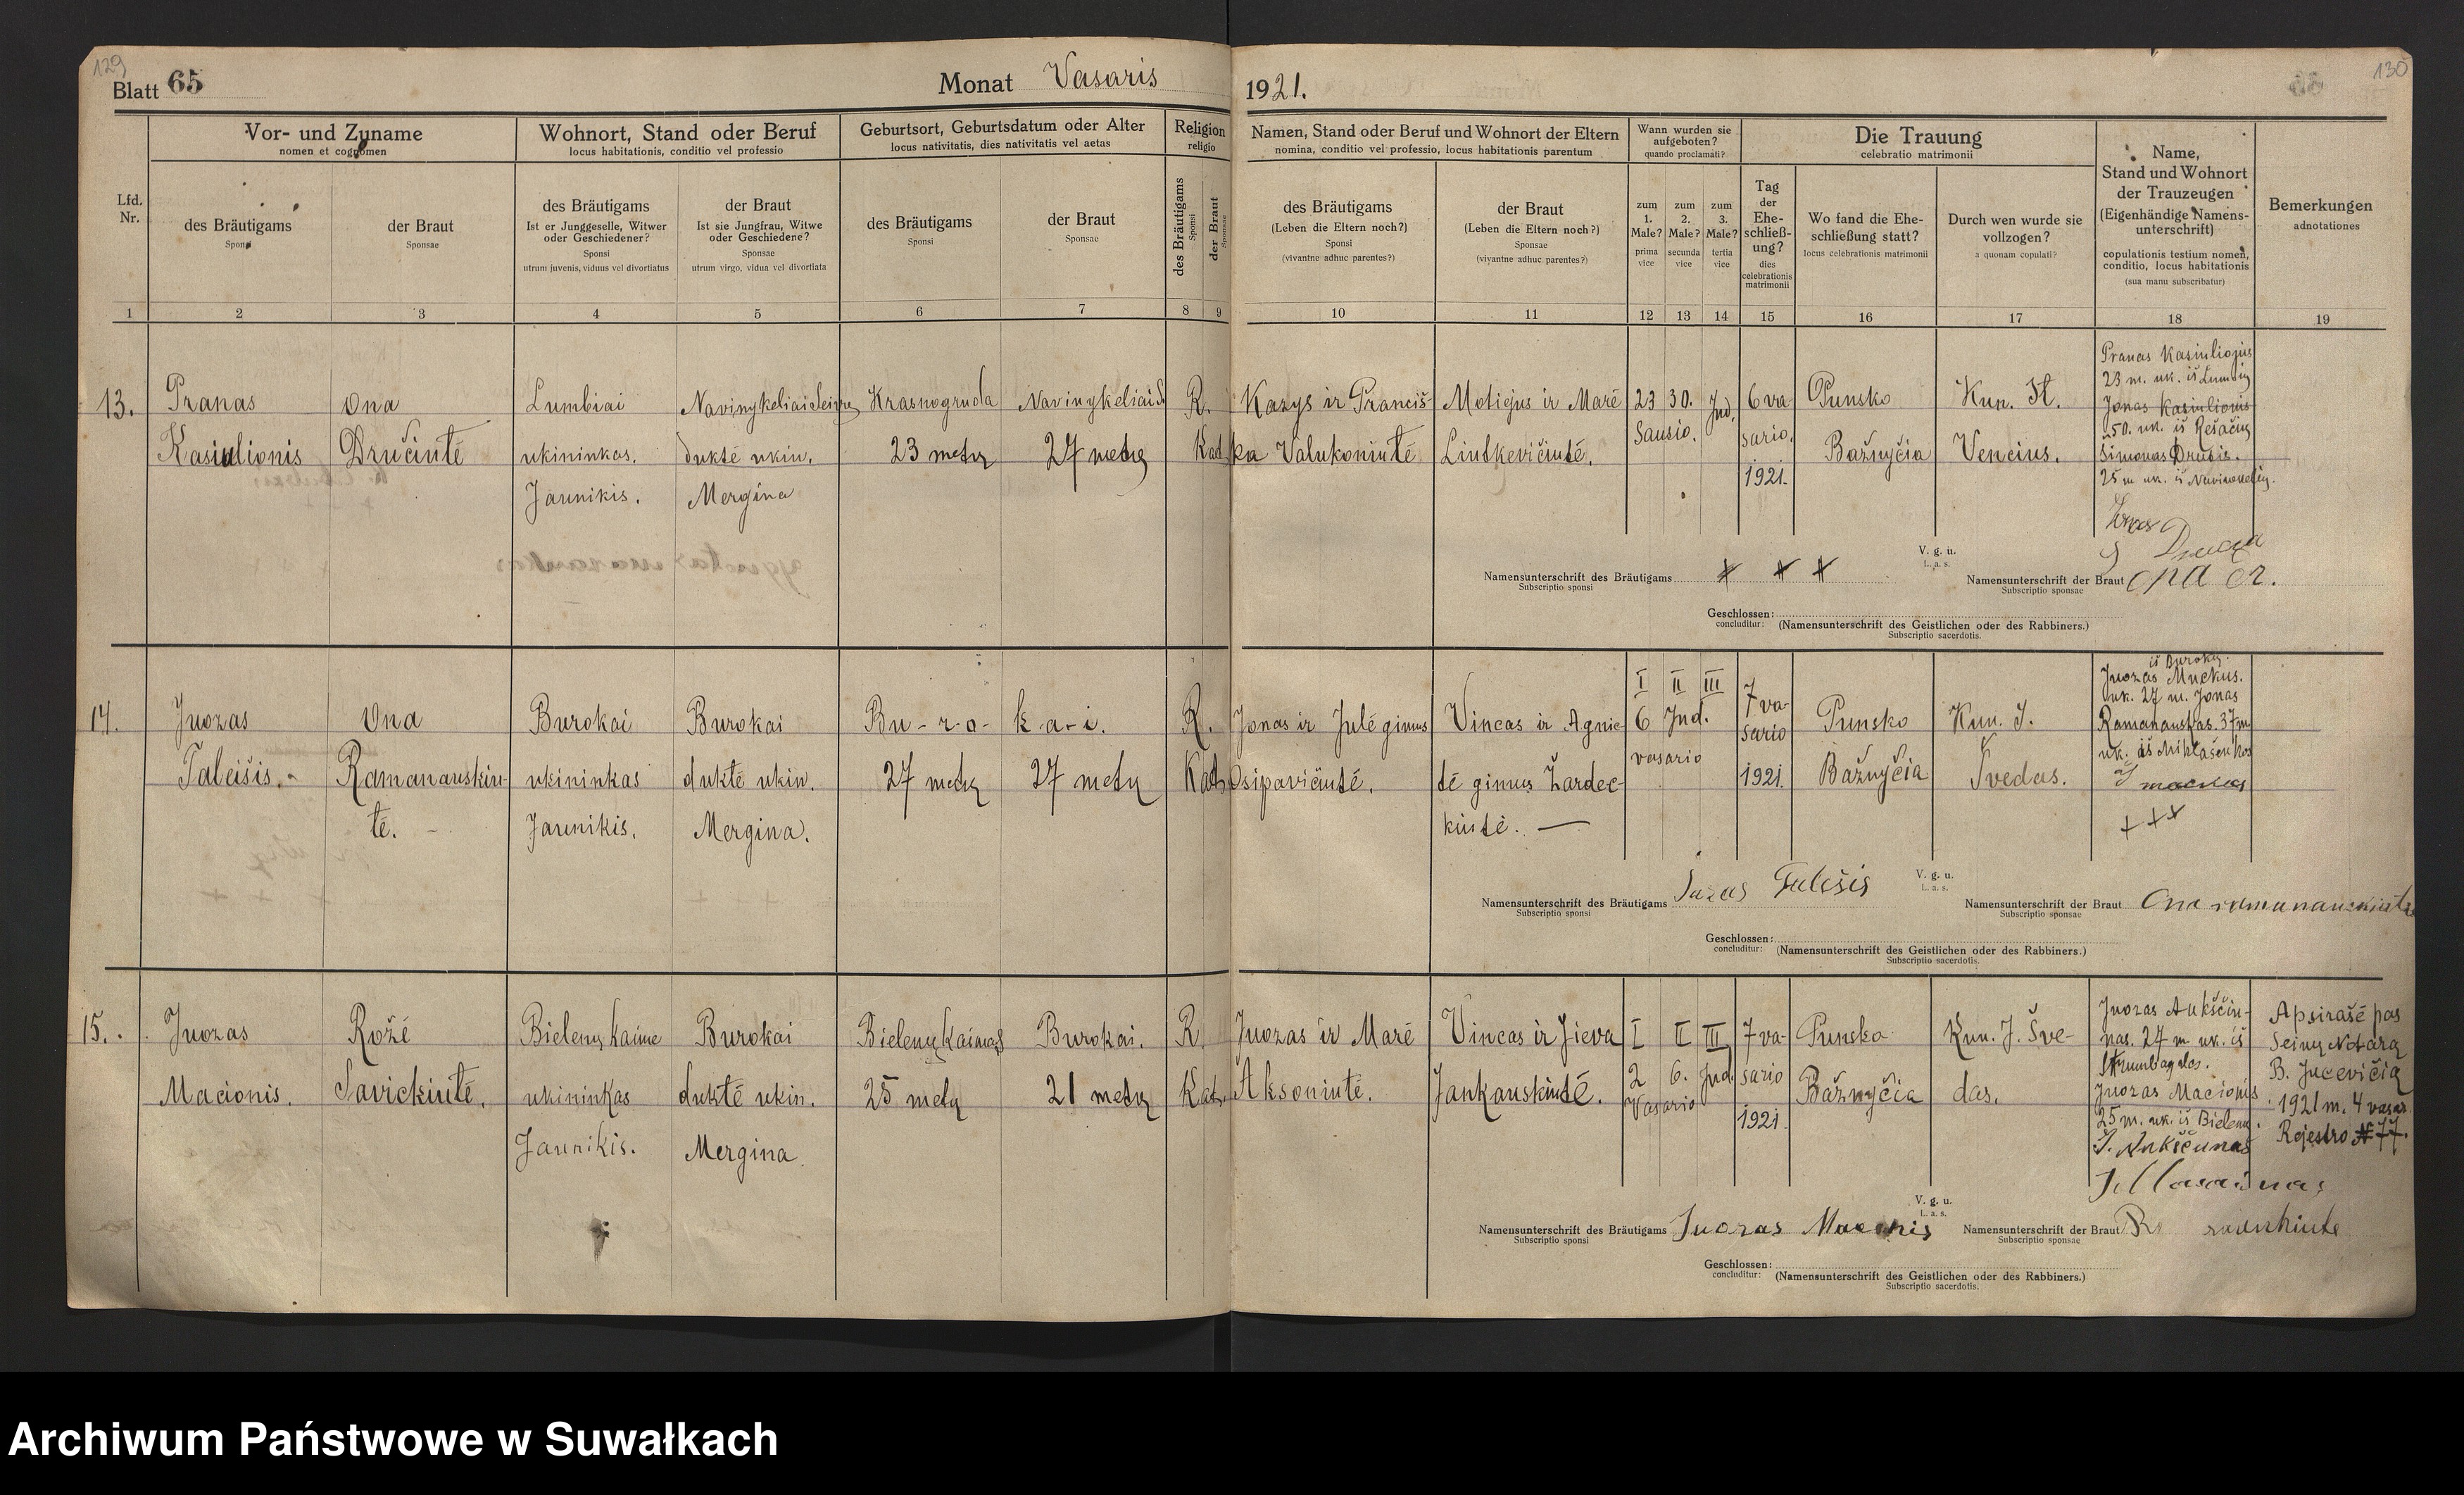 129
Blatt 65
Monat Vasaris
1921.
130
Vor- und Zuname
nomen et cognomen
Wohnort, Stand oder Beruf
locus habitationis, conditio vel professio
Geburtsort, Geburtsdatum oder Alter
locus nativitatis, dies nativitatis vel aetas
Religion
religio
Namen, Stand oder Beruf und Wohnort der Eltern
nomina, conditio vel professio, locus habitationis parentum
Wann wurden sie
aufgeboten?
quando proclamati?
Die Trauung
celebratio matrimonii
Name,
Stand und Wohnort
der Trauzeugen
(Eigenhändige Namens-
unterschrift)
copulationis testium nomen,
conditio, locus habitationis
(sua manu subscribatur)
Bemerkungen
adnotationes
Lfd.
Nr.
des Bräutigams
Sponsi
der Braut
Sponsae
des Bräutigams
Ist er Junggeselle, Witwer
oder Geschiedener?
Sponsi
utrum juvenis, viduus vel divortiatus
der Braut
Ist sie Jungfrau, Witwe
oder Geschiedene?
Sponsae
utrum virgo, vidua vel divortiata
des Bräutigams
Sponsi
der Braut
Sponsae
des Bräutigams
Sponsi
der Braut
Sponsae
des Bräutigams
(Leben die Eltern noch?)
Sponsi
(vivantne adhuc parentes?)
der Braut
(Leben die Eltern noch?)
Sponsae
(vivantne adhuc parentes?)
zum
1.
Male?
prima
vice
zum
2.
Male?
secunda
vice
zum
3.
Male?
tertia
vice
Tag
der
Ehe-
schließ-
ung?
dies
celebrationis
matrimonii
Wo fand die Ehe-
schließung statt?
locus celebrationis matrimonii
Durch wen wurde sie
vollzogen?
a quonam copulati?
1 2 3 4 5 6 7 8 9 10 11 12 13 14 15 16 17 18 19
13.
Pranas
Kasiulionis
Ona
Dručiutė
Lumbiai
ukininkas.
Jaunikis.
Navinykeliai
duktė ukin.
Mergina
Krasnogruda
23 metų
27 metų
R.
Kat.
Kazys ir Pranciš-
ka Valukoniutė
Motiejus ir Marė
Liutkevičiutė.
23 30. Ind.
Sausio.
6 va
sario.
1921.
Punsko
Bažnyčia
Kun. St.
Vencius.
Pranas Kasiulionis
23 m. uk. iš
Jonas Kasiulionis
50. uk. iš
Simonas
25 m uk. iš
V. g. u.
L. a. s.
Namensunterschrift des Bräutigams
Subscriptio sponsi
× × ×
Namensunterschrift der Braut
Subscriptio sponsae
Geschlossen:
concluditur:
(Namensunterschrift des Geistlichen oder des Rabbiners.)
Subscriptio sacerdotis.
14.
Juozas
Taleišis.
Ona
Ramanauskiu-
tė.
Burokai
ukininkas
Jaunikis.
Burokai
duktė ukin.
Mergina.
Bu-r-o-k-a-i.
27 metų
27 metų
R.
Kat.
Jonas ir Julė gimus
Osipavičiutė.
Vincas ir Agnie-
tė gimus Žardec-
kiutė. —
I II III
6 Ind.
vasario
7 va-
sario
1921.
Punsko
Bažnyčia
Kun. J.
Švedas.
iš Burokų.
Juozas Muckus.
uk. 27 m. Jonas
Ramanauskas. 37 m
+++
V. g. u.
L. a. s.
Namensunterschrift des Bräutigams
Subscriptio sponsi
Namensunterschrift der Braut
Subscriptio sponsae
Geschlossen:
concluditur:
(Namensunterschrift des Geistlichen oder des Rabbiners.)
Subscriptio sacerdotis.
15.
Juozas
Macionis.
Rožė
Savickiutė.
Bielenų kaime
ukininkas
Jaunikis.
Burokai
duktė ukin.
Mergina
Bielenų kaimas
25 metų
Burokai.
21 metų
R.
Kat.
Juozas ir Marė
Aksoniutė.
Vincas ir Jieva
Jankauskiutė.
I II III
2 6. Ind.
Vasario
7 va-
sario
1921
Punsko
Bažnyčia
Kun. J. Šve-
das.
Juozas Aukščiu-
nas. 27 m. uk. iš
Juozas Macionis
25 m. uk. iš Bielenų.
Apsirašė pas
Seinų Notarą
B. Jucevičią
1921 m. 4 vasar.
Rejestro № 77.
V. g. u.
L. a. s.
Namensunterschrift des Bräutigams
Subscriptio sponsi
Juozas
Namensunterschrift der Braut
Subscriptio sponsae
Geschlossen:
concluditur:
(Namensunterschrift des Geistlichen oder des Rabbiners.)
Subscriptio sacerdotis.
Archiwum Państwowe w Suwałkach